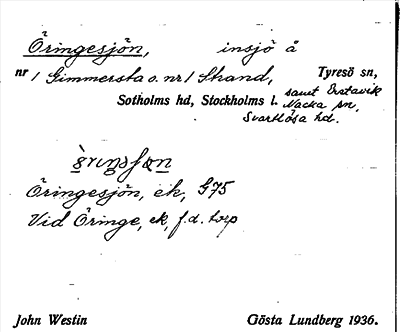 Öringesjön, insjö å
nr 1 Gimmersta o. nr 1 Strand, Tyresö sn,
samt Erstavik
Sotholms hd, Stockholms l. Nacka sn,
Svartlösa hd.
Öringesjön, ek, G75
Vid Öringe, ek, f.d. torp
John Westin Gösta Lundberg 1936.